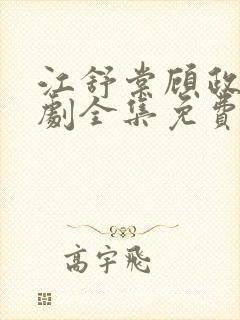 江舒棠顾政
劇全集免費
高宇飛